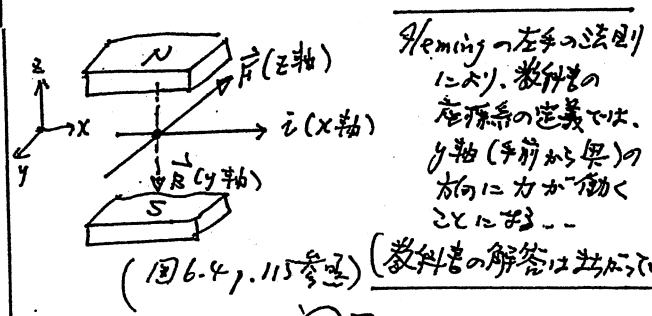 N
z
x
y
F (z軸)
i (x軸)
B (y軸)
S
(図6.4, p.115参照)
Flemingの左手の法則
により、教科書の
座標系の定義では、
y軸(手前から奥)の
方向に力が働く
ことになる...
(教科書の解答はまちがって